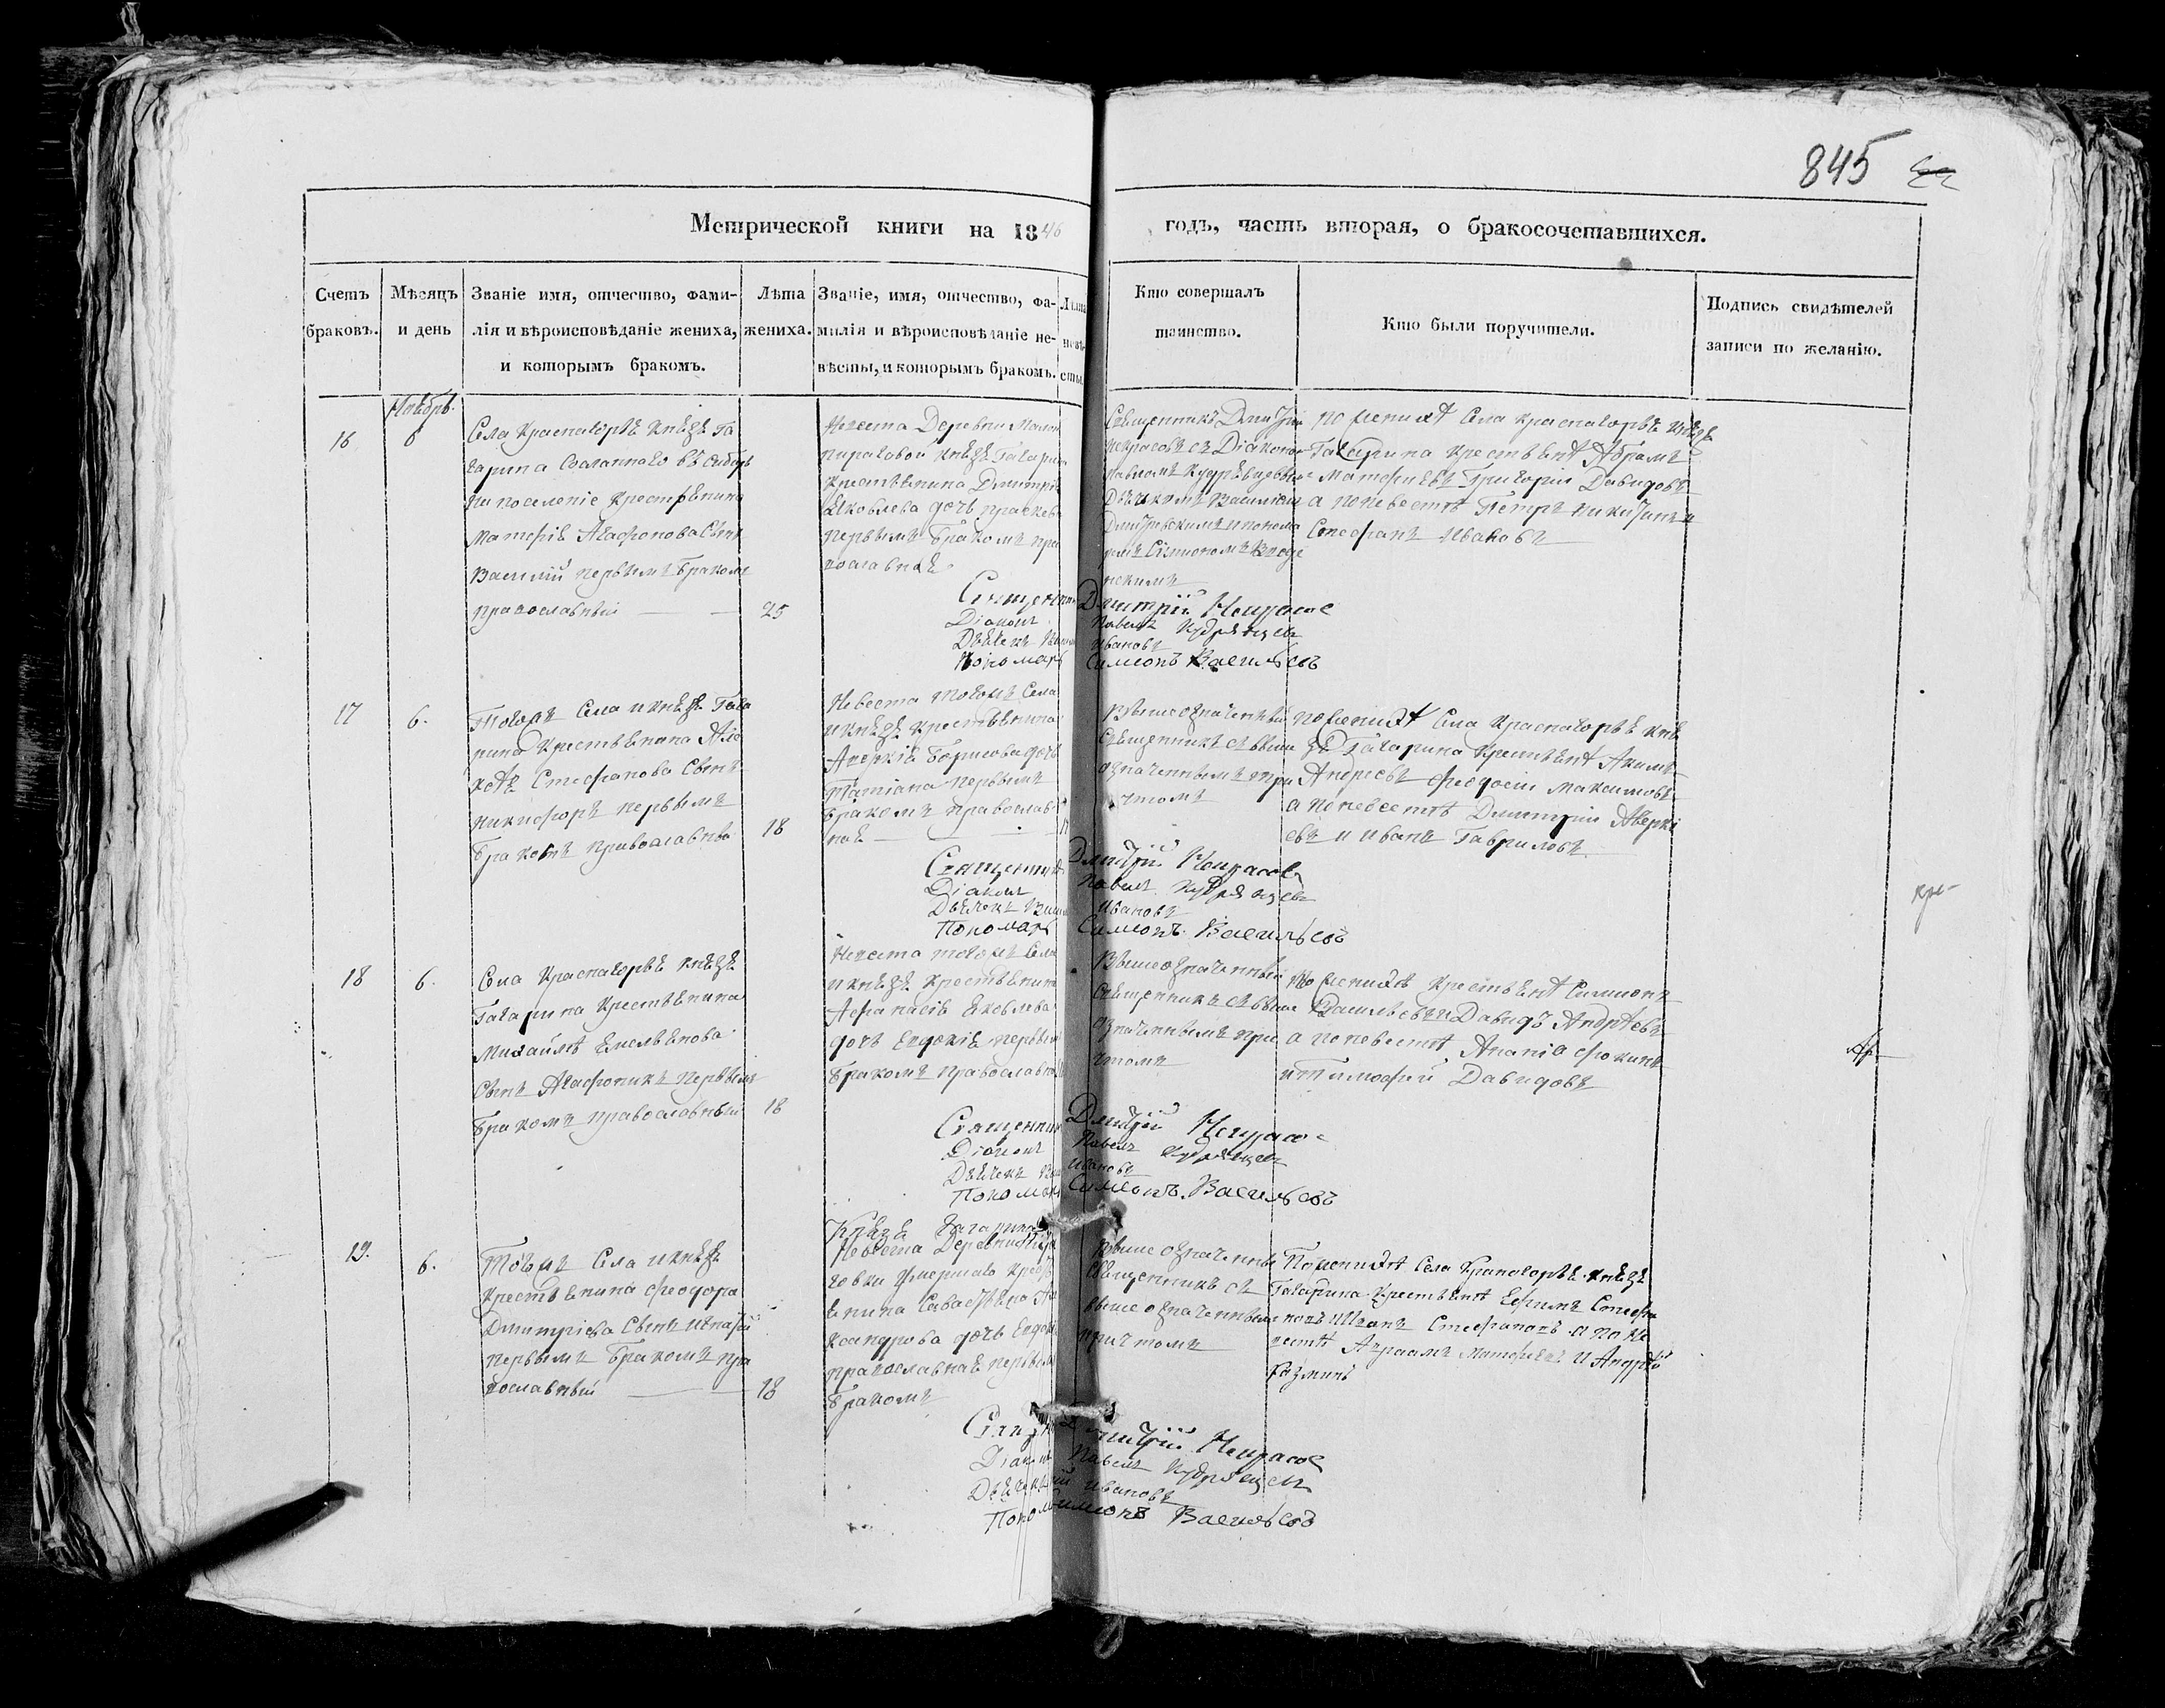 845
Метрической книги на 1846
годъ, часть вторая, о бракосочетавшихся.
Счетъ браковъ.
Мѣсяцъ и день
Званіе имя, отчество, фами-
лія и вѣроисповѣданіе жениха,
и которымъ бракомъ.
Лѣта жениха.
Званіе, имя, отчество, фа-
милія и вѣроисповѣданіе не-
вѣсты, и которымъ бракомъ.
Кто совершалъ
таинство.
Кто были поручители.
Подпись свидѣтелей
записи по желанію.
Ноябрь.
16
6
Села Красногорья Князя Га
гарина Сосланнаго въ Сибирь
на поселеніе Крестьянина
Матфія Агафонова Сынъ
Василій первымъ бракомъ
православный
25
Невеста Деревни
Князя Гагарина
Крестьянина Дмитрія
Яковлева дочь
первымъ бракомъ пра
вославная
Священникъ Дмитрій
Некрасовъ съ Діакономъ
Павломъ Кудрявцевымъ
Дьячкомъ Василіемъ
и понома
ремъ Симіономъ
По женихѣ Села Красногорья Князя
Гагарина крестьянѣ Абрамъ
Матфіевъ Григорій Давидовъ
а по невестѣ Петръ Никитинъ и
Стефанъ Ивановъ
Священникъ Дмитрій Некрасовъ
Діаконъ Павелъ Кудрявцевъ
Дьячекъ Ивановъ
Пономарь Симіонъ Васильевъ
17
6.
Тогожъ Села и князя Гага
рина Крестьянина
Стефанова Сынъ
Никифоръ первымъ
бракомъ православны
18
Невеста тогожъ Села
и князя крестьянина
Аверкія Борисова дочь
Татіана первымъ
бракомъ православ
ная
Вышеозначенный
Священникъ съ выше
означеннымъ при
чтомъ
По женихѣ Села Красногорья Кня
зя Гагарина Крестьянѣ Акимъ
Андреевъ Феодосій Максимовъ
а по невестѣ Дмитрій Аверкі
евъ и Иванъ Гавриловъ
Священникъ Дмитрій Некрасовъ
Діаконъ Павелъ Кудрявцевъ
Дьячекъ Ивановъ
Пономарь Симіонъ Васильевъ
18
6.
Села Красногорья Князя
Гагарина Крестьянина
Михайлы Емельянова
Сынъ Агафоникъ первымъ
бракомъ православный
18
Невеста тогожъ Села
и князя крестьянина
Афанасія Яковлева
дочь Евдокія первымъ
бракомъ православна
Вышеозначенный
Священникъ съ выше
означеннымъ при
чтомъ
По женихѣ Крестьянѣ Симионъ
Васильевъ и Давидъ Андреевъ
а по невестѣ Ананіа Фокинъ
и Тимофей Давидовъ
Священникъ Дмитрій Некрасовъ
Діаконъ Павелъ Кудрявцевъ
Дьячекъ Ивановъ
Пономарь Симіонъ Васильевъ
19.
6.
Тогожъ Села и князя
Крестьянина Феодора
Дмитріева Сынъ Игнатій
первымъ бракомъ пра
вославный
18
Князя Гагарина
Невеста Деревни
умершаго Кресть
янина
дочь
православная первымъ
бракомъ
Выше означенны
Священникъ съ
выше означеннымъ
причтомъ
По женихѣ Села Красногорья Князя
Гагарина Крестьянѣ Ефимъ Стефа
новъ Иванъ Стефановъ а по не
вестѣ Авраамъ Матфіевъ и Андрей
Козминъ
Дмитрій Некрасовъ
Діаконъ Павелъ Кудрявцевъ
Дьячекъ Ивановъ
Симіонъ Васильевъ